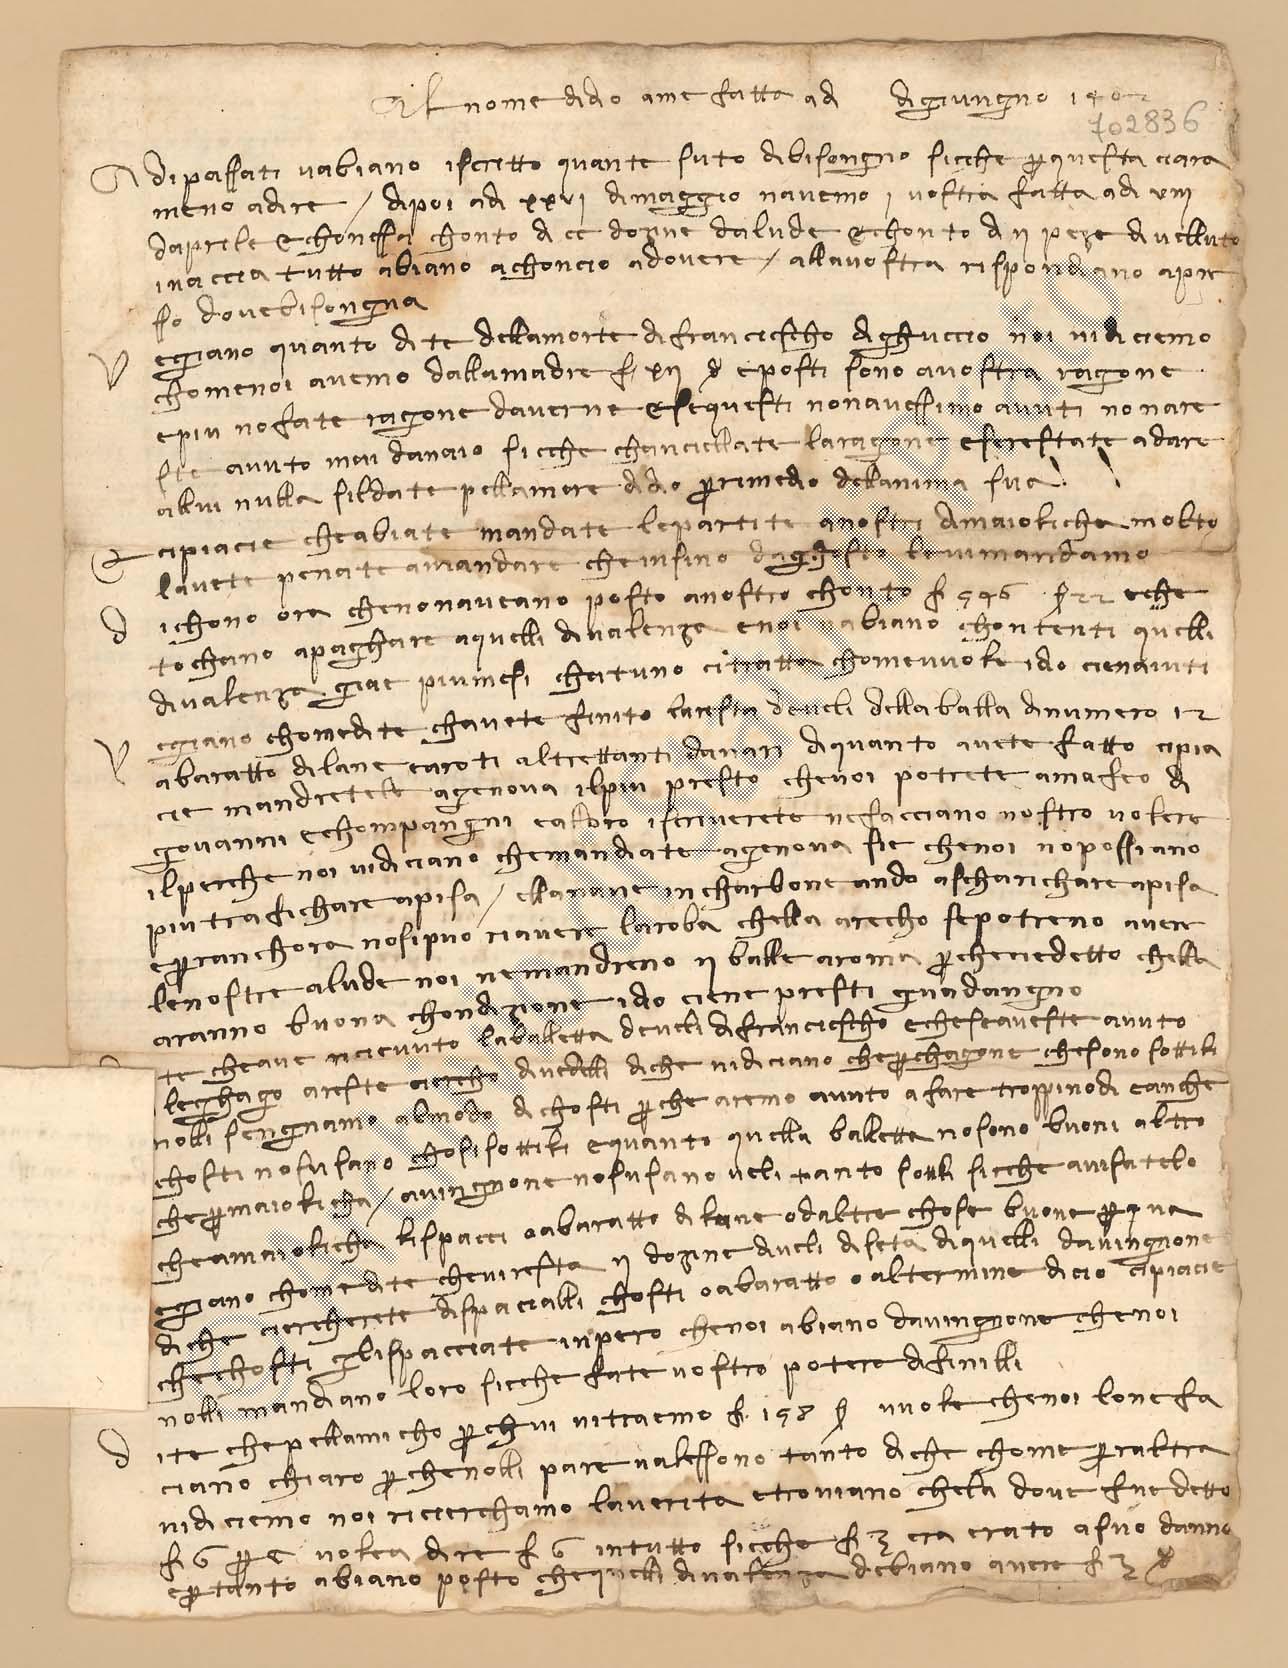 Al nome di dio ame fatta adi di giungno 1402
702836
A di passati vabiano iscritto quante suto di bisongno sicche p questa ciara
meno adire / dipoi adi xxvi di maggio navemo j vostra fatta adi viii
daprile e chonessa chonto di cc dozine dalude e chonto di ij peze di velluto
in accia tutto abiano achoncio adovere / alla vostra rispondiano apre
so dove bisongna
V egiano quanto dite della morte di franciescho di ghuccio noi vidiciemo
chome noi avemo dalla madre f xij d e posti sono a vostra ragone
e piu no fate ragone daverne e se questi non avessimo avuti no nare
ste avuto mai danaio sicche chanciellate la ragone e se restate adare
allui nulla sildate pellamore didio p rimedio dellanima sua
E cipiacie che abiate mandate le partite a nostri di maioliche molto
lavete penate a mandare che insino daghosto le vi mandamo
d ichono ora che non aveano posto a nostro chonto f 546 s 22 e che
tochano apaghare a quelli di valenza e noi nabiano chontenti quelli
di valenza giae piu mesi chatuno ci tratta chome vuole idio cienaiuti
V egiano chome dite chavete finito la resta de veli della balla di numero 12
abaratto di lane earoti altrettanti danari di quanto avete fatto cipia
cie mandretele a genova il piu presto che voi potrete a mafeo di
govanni e chompangni e alloro iscriverete ne facciano nostro volere
il perche noi vi diciano che mandiate a genova sie che noi no possiano
piu traficharе a pisa / ella nave in charbone ando a scharichare a pisa
e p anchora no si puo riavere la roba chella arecho se potreno avere
le nostre alude noi ne mandreno ij balle a roma p che cie detto chella
aranno buona chondizione idio ciene presti guadangno
te che ave ricievuto la balletta de veli di franciescho e che se aveste avuto
leghago areste ciercho di vedelli di che vi diciano che p chagone che sono sottili
nolli sengnamo al modo di chosti p che aremo avuto a fare troppi nodi e anche
chosti no susano chosi sottili e quanto quella balletta no sono buoni altro
che p maiolicha / a vingnone no susano veli tanto sottili sicche avisatelo
che a maioliche li spacci o abaratto di lane o daltre chose buone p qua
egiano chome dite che vi resta ij dozine di veli di seta di quelli da vingnone
di che ciercherete di spacialli chosti o abaratto o altermine di cio cipiacie
che chosti gli spacciate in pero che noi abiano da vingnone che noi
nolli mandiano loro sicche fate vostro potere di finilli
d ite che pellamicho p chui vi traemo f 158 s vuole che noi lone fa
ciano chiaro p che nolli pare valessono tanto di che chome p altra
vi diciemo noi ricierchamo la verita e troviano chela dove fue detto
f 6 p c volea dire f 6 in tutto sicche f 3 era erato a suo danno
e p tanto abiano posto che quelli di valenza debiano avere f 3 d